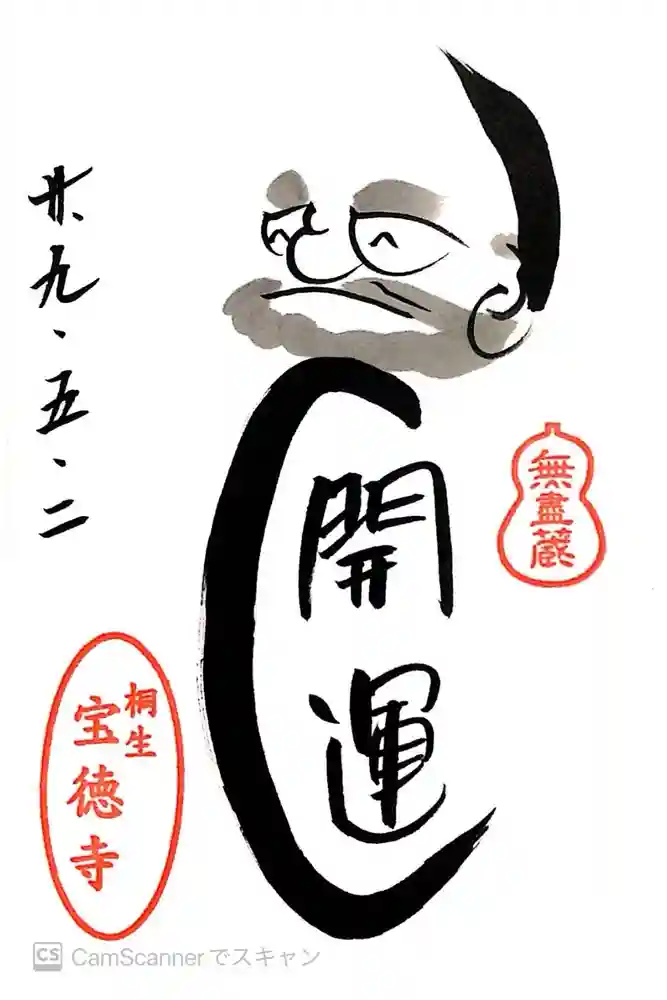 開運
無盡蔵
廿九・五・二
桐生
宝徳寺
CS CamScannerでスキャン